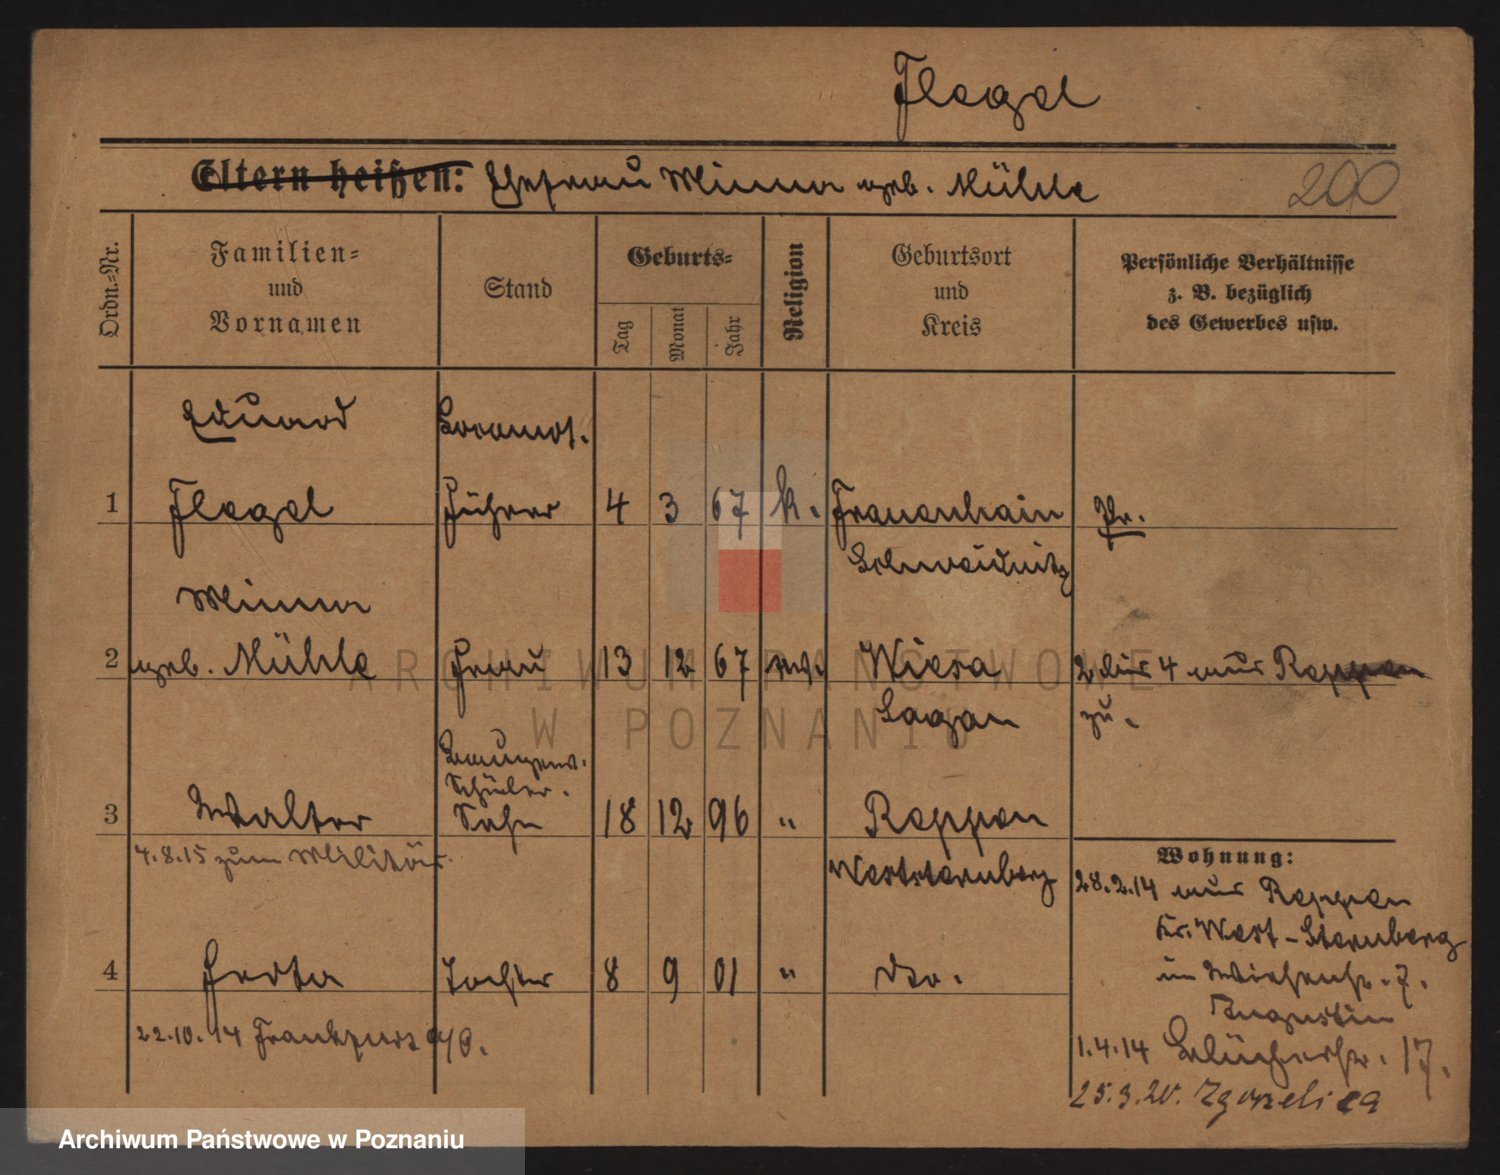 Flegel
Eltern heißen: Ehefrau Minna geb. Mühle
200
Ordn.-Nr.
Familien-
und
Vornamen
Stand
Geburts-
Tag
Monat
Jahr
Religion
Geburtsort
und
Kreis
Persönliche Verhältnisse
z. B. bezüglich
des Gewerbes usw.
Eduard Locomot.
1 Flegel Führer 4 3 67 k. Frauenhain Pr.
Schweidnitz
Minna
2 geb. Mühle Frau 13 12 67 ev. Wiesa 2 bis 4 aus Reppen
Sagan zu.
Schüler.
3 Walter Sohn 18 12 96 " Reppen
4.8.15 zum Militär.
Weststernberg
Wohnung:
28.2.14 aus Reppen
Kr. West-Sternberg
4 Herta Tochter 8 9 01 " dto.
in Wiesenstr. 7.
Augustin
22.10.14 Frankfurt a/O.
1.4.14 Blücherstr. 17.
25.3.20. Zgorzelica
ARCHIWUM PAŃSTWOWE
W POZNANIU
Archiwum Państwowe w Poznaniu